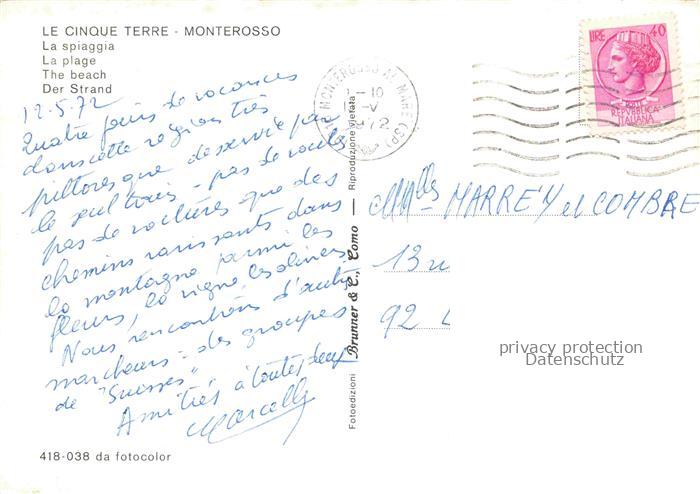 LE CINQUE TERRE - MONTEROSSO
La spiaggia
La plage
The beach
Der Strand
12.5.72
Quatre jours de vacances
dans cette région très
pittoresque desservie par
le seul train - pas de routes
pas de voitures que des
chemins ravissants dans
la montagne parmi les
fleurs, la vigne, les oliviers.
Nous rencontrons d'autres
marcheurs - des groupes
de "Suisses"
Amitiés à toutes deux
Marcelle
418-038 da fotocolor
Fotoedizioni Brunner & C., Como — Riproduzione vietata
MONTEROSSO AL MARE (SP)
-10
-V
72
LIRE 40
POSTE
REPVBBLICA
ITALIANA
MMelles MARREY et COMBRE
13
92
privacy protection
Datenschutz